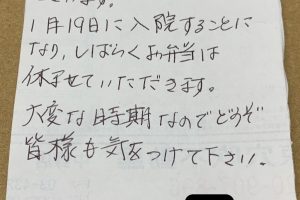 ございます。
1月19日に入院することに
なり、しばらくお弁当は
休ませていただきます。
大変な時期なのでどうぞ
皆様も気をつけて下さい。